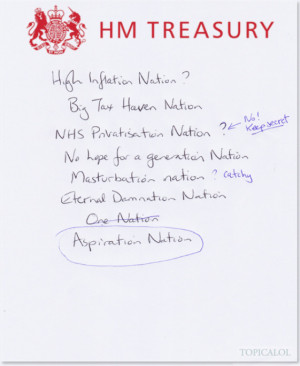 HM TREASURY
High Inflation Nation?
Big Tax Haven Nation
NHS Privatisation Nation ? ← No! Keep secret
No hope for a generation Nation
Masturbation nation ? catchy
Eternal Damnation Nation
One Nation
Aspiration Nation
TOPICALOL